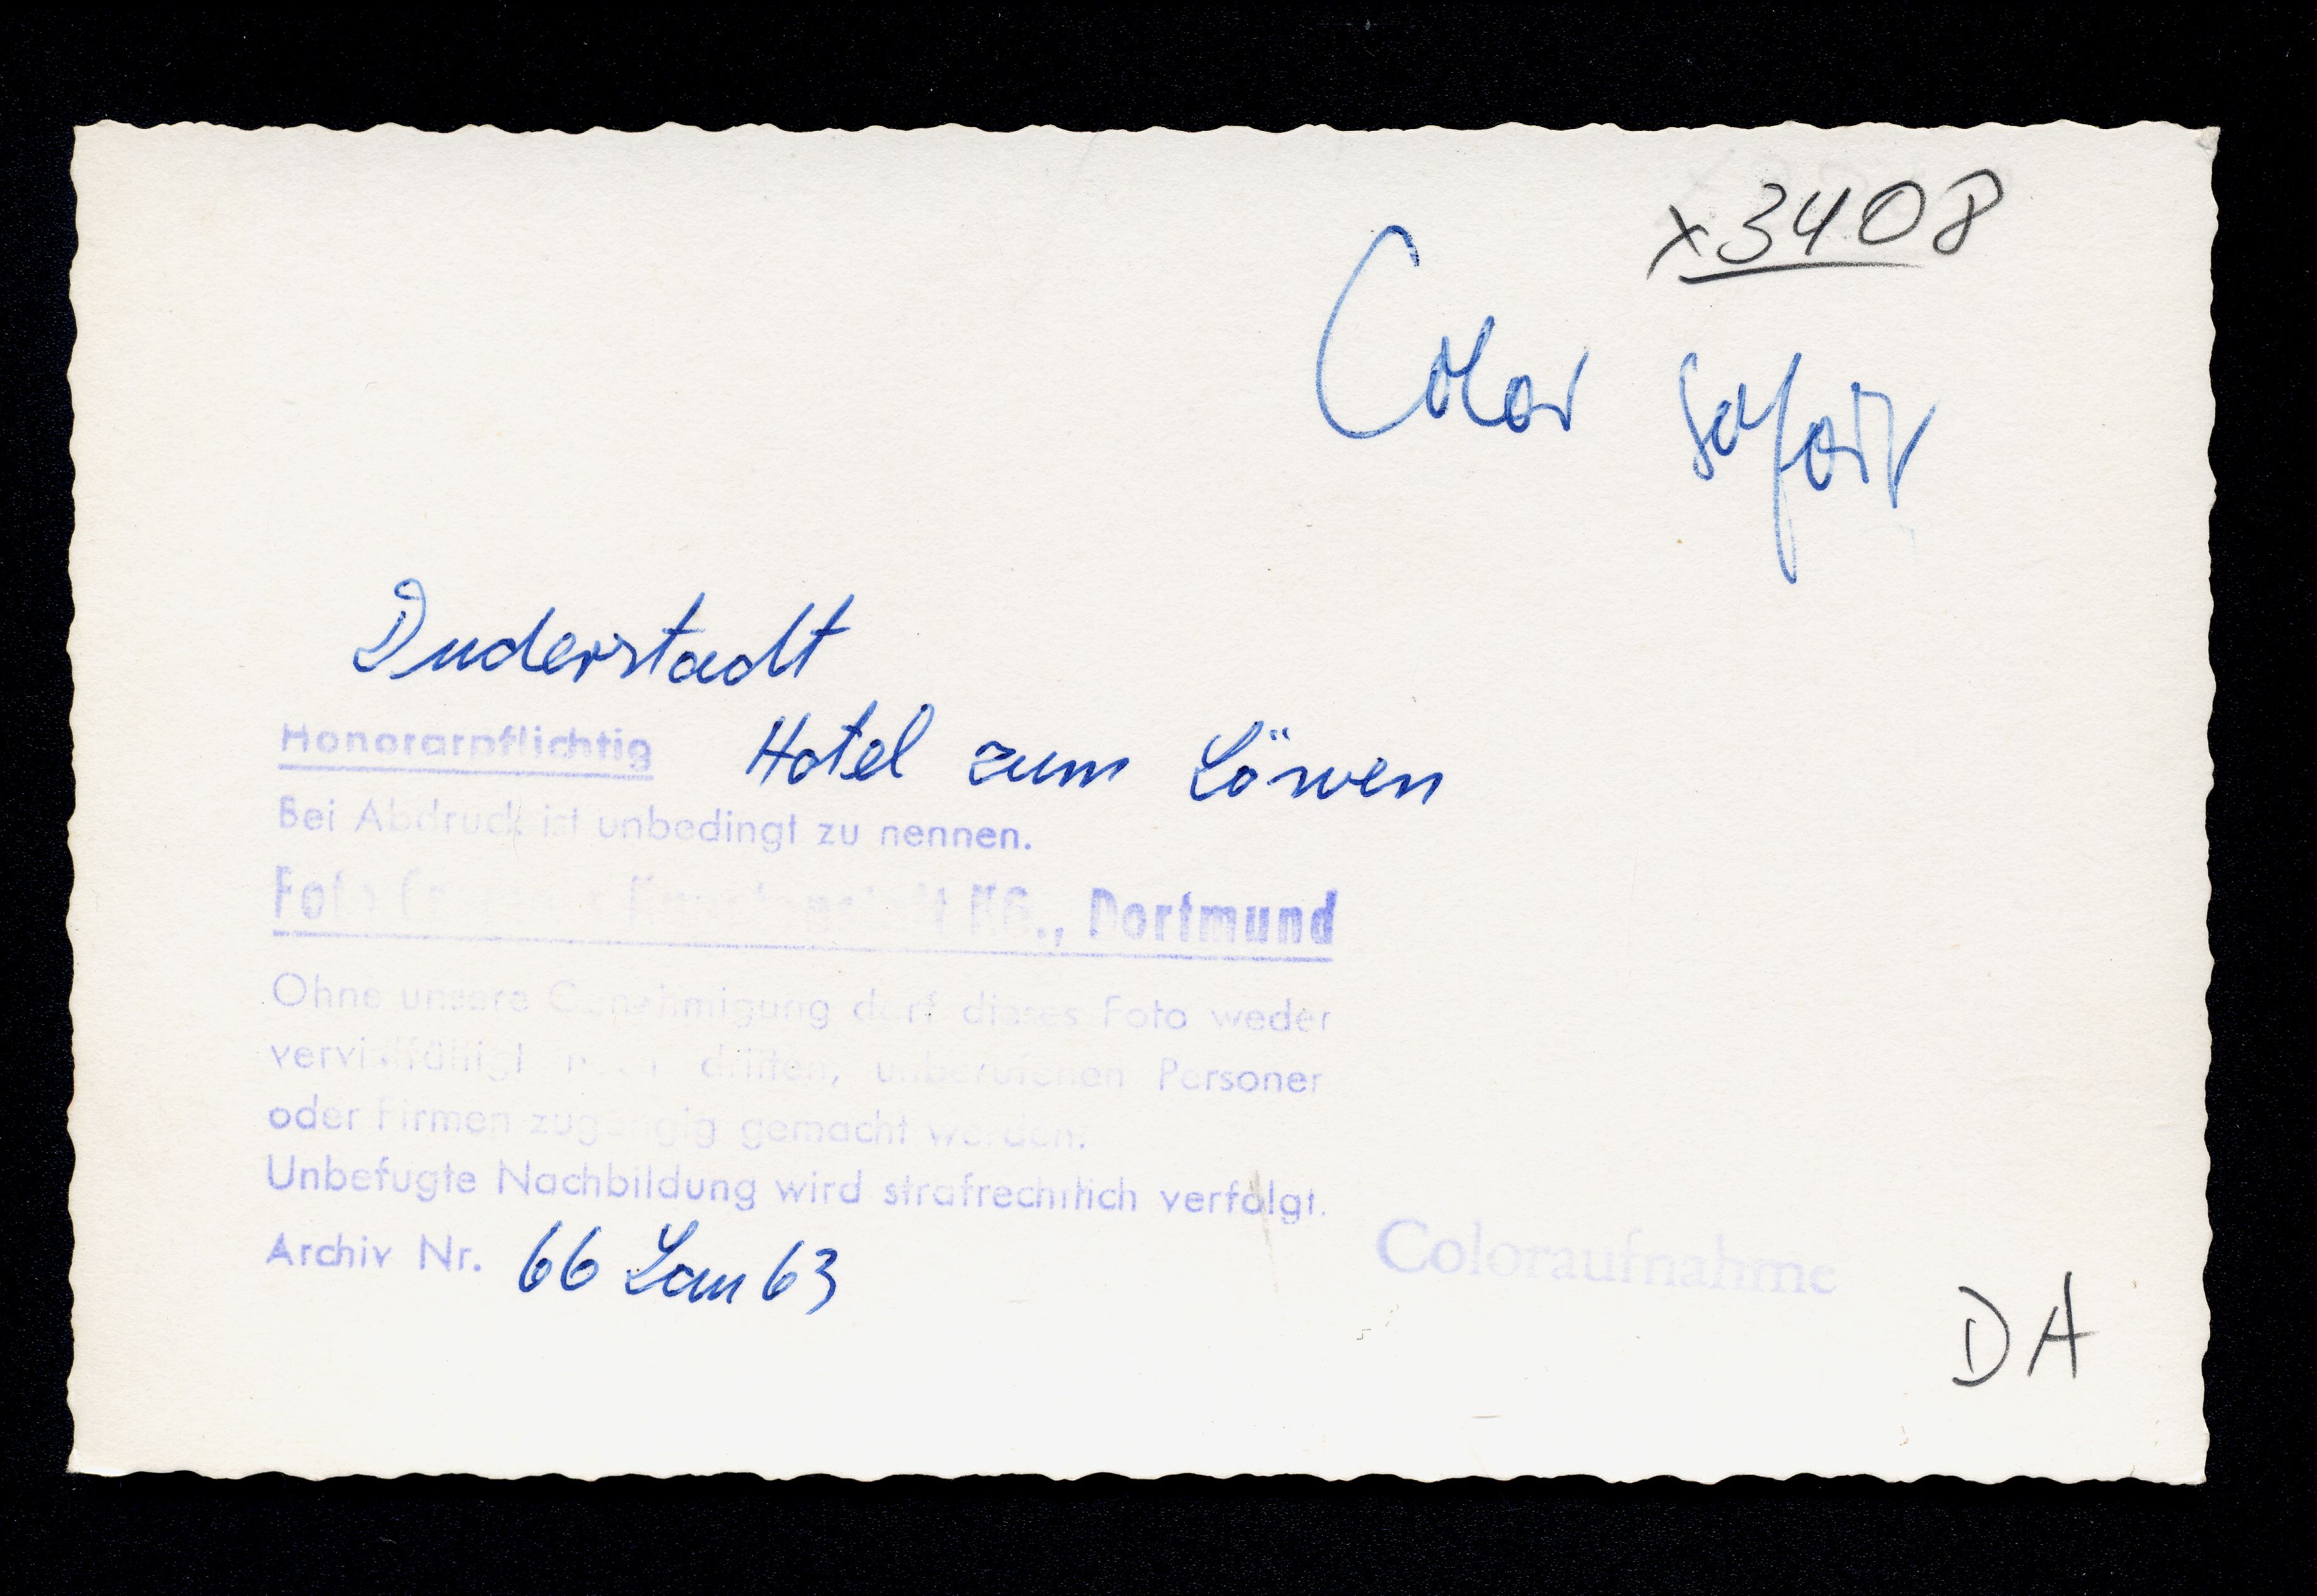 x3408
Color sofort
Duderstadt
Hotel zum Löwen
Honorarpflichtig
Bei Abdruck ist unbedingt zu nennen.
Foto KG., Dortmund
Ohne unsere Genehmigung darf dieses Foto weder
vervielfältigt noch dritten, unberufenen Personen
oder Firmen zugängig gemacht werden.
Unbefugte Nachbildung wird strafrechtlich verfolgt.
Archiv Nr. 66 Lan 63
Coloraufnahme
DA